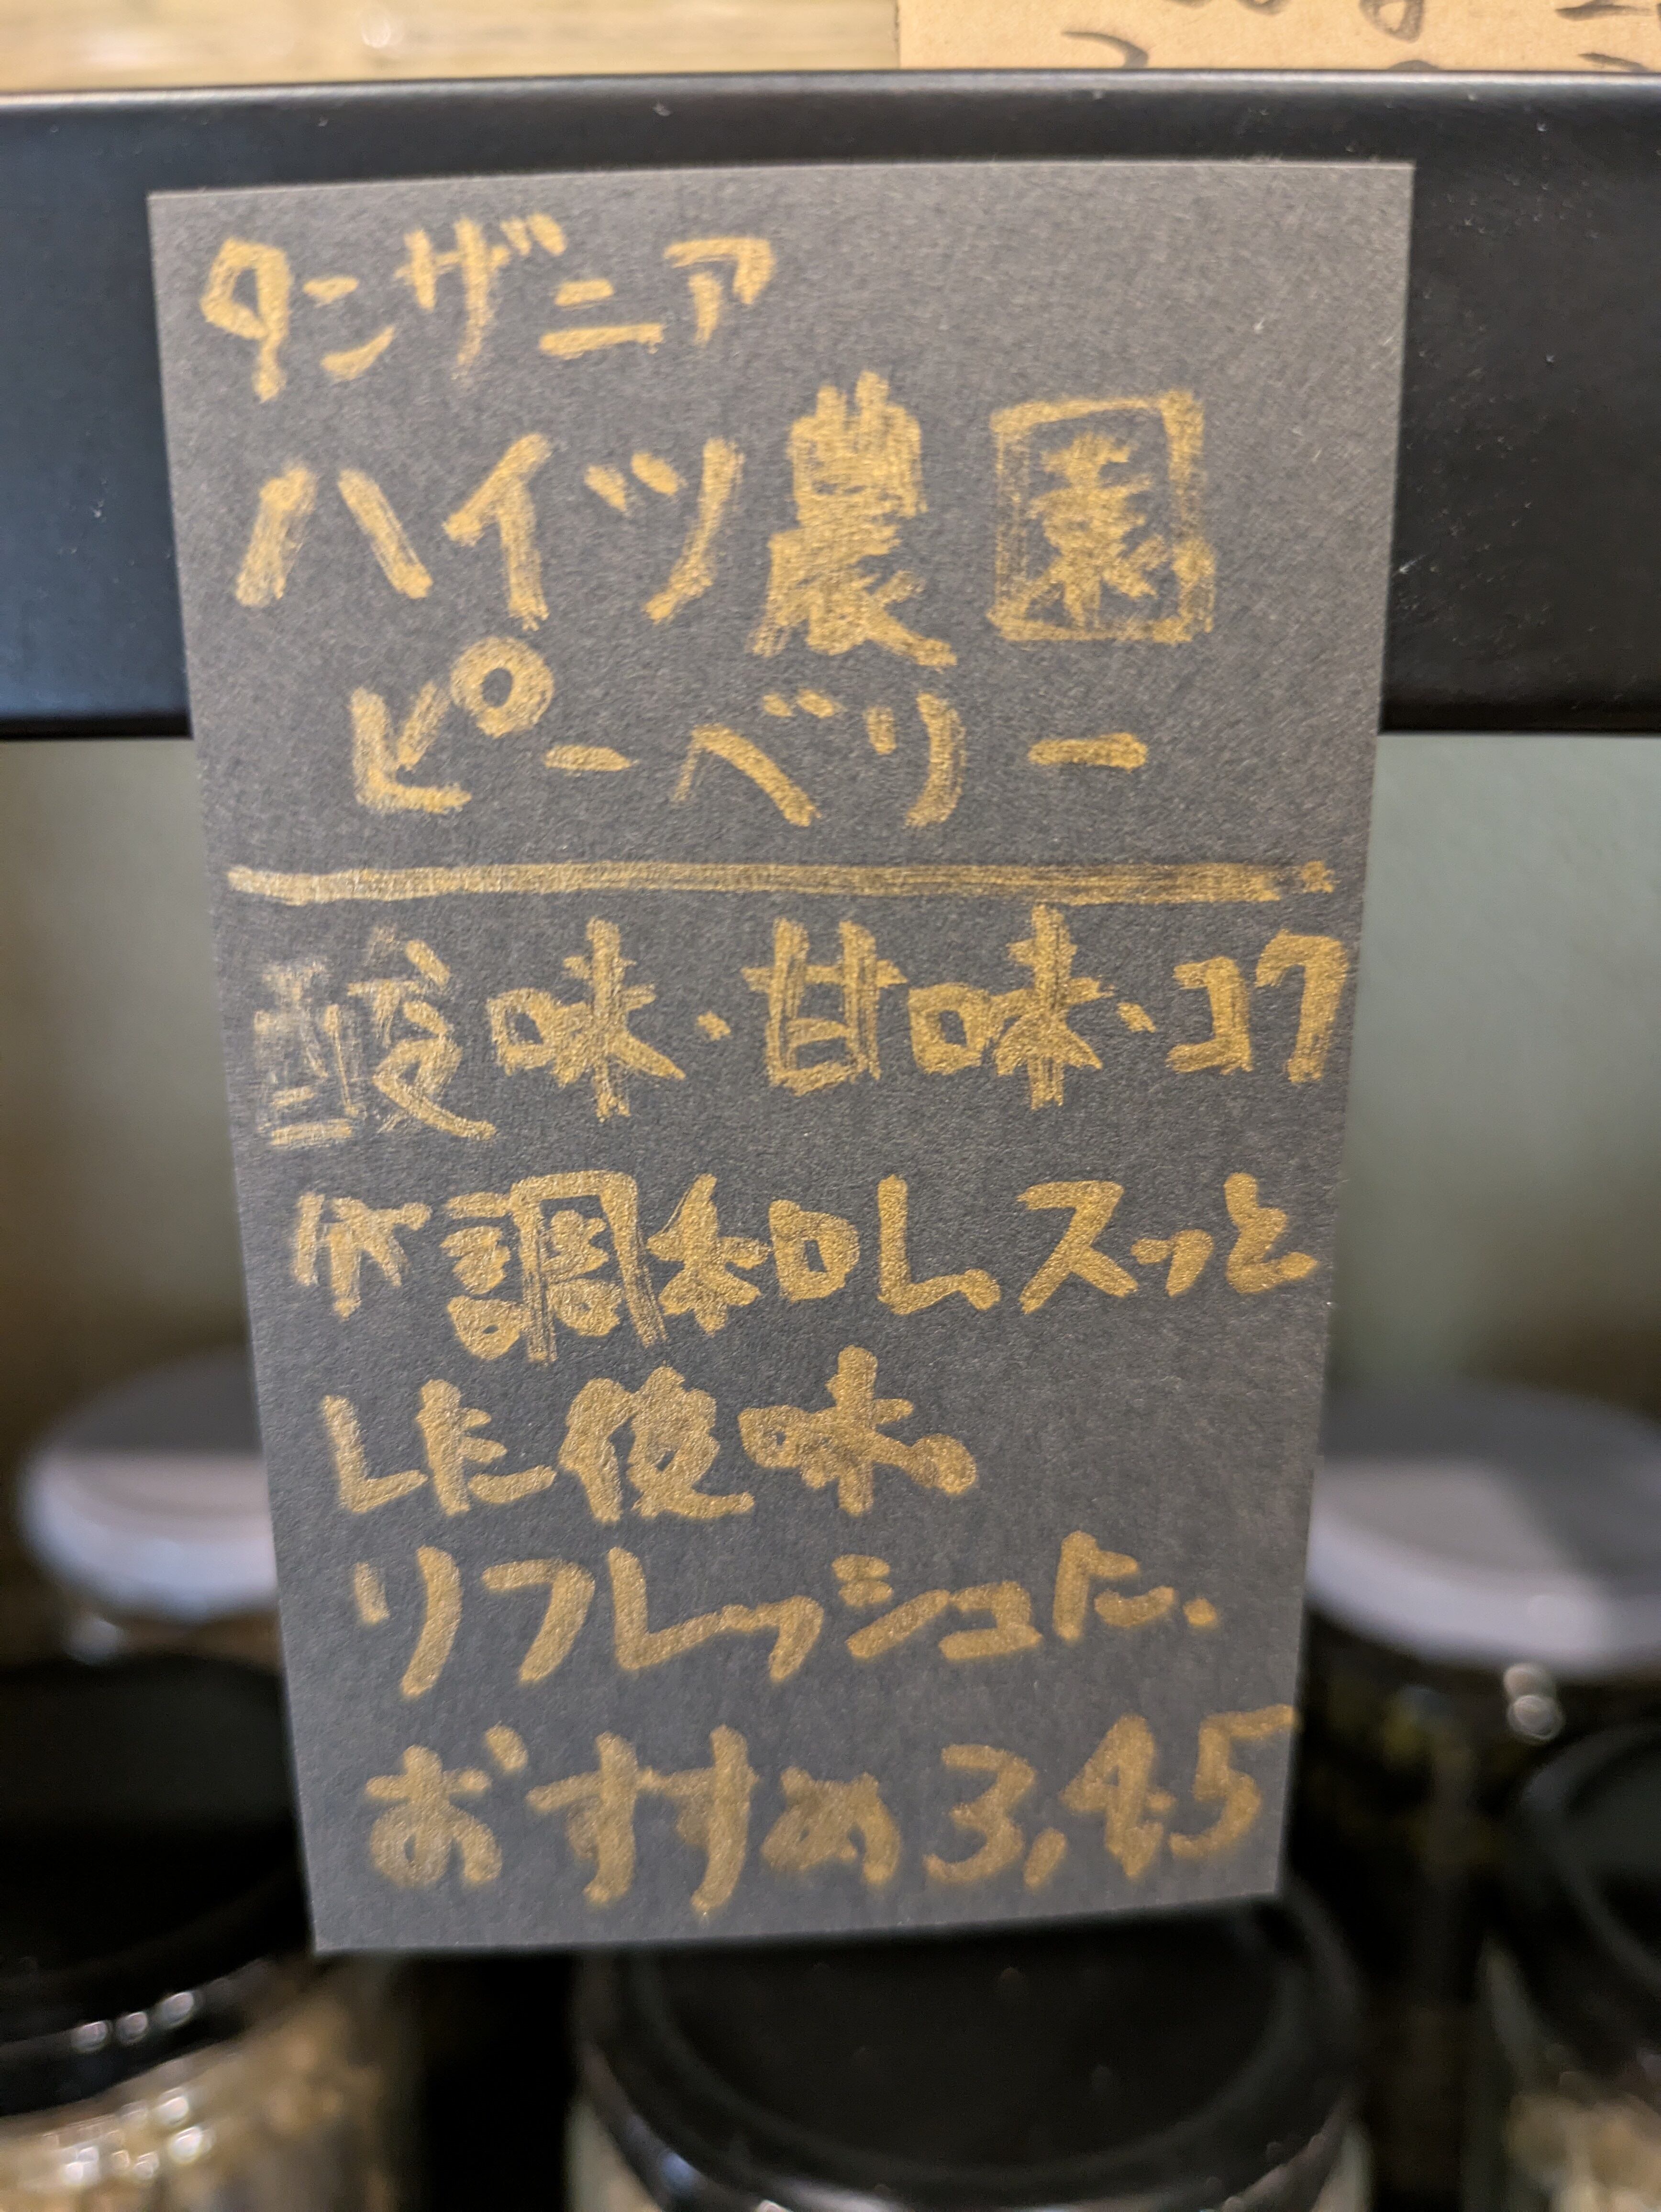 タンザニア
ハイツ農園
ピーベリー
酸味・甘味・コク
が調和しスッと
した後味。
リフレッシュに.
おすすめ 3,4,5